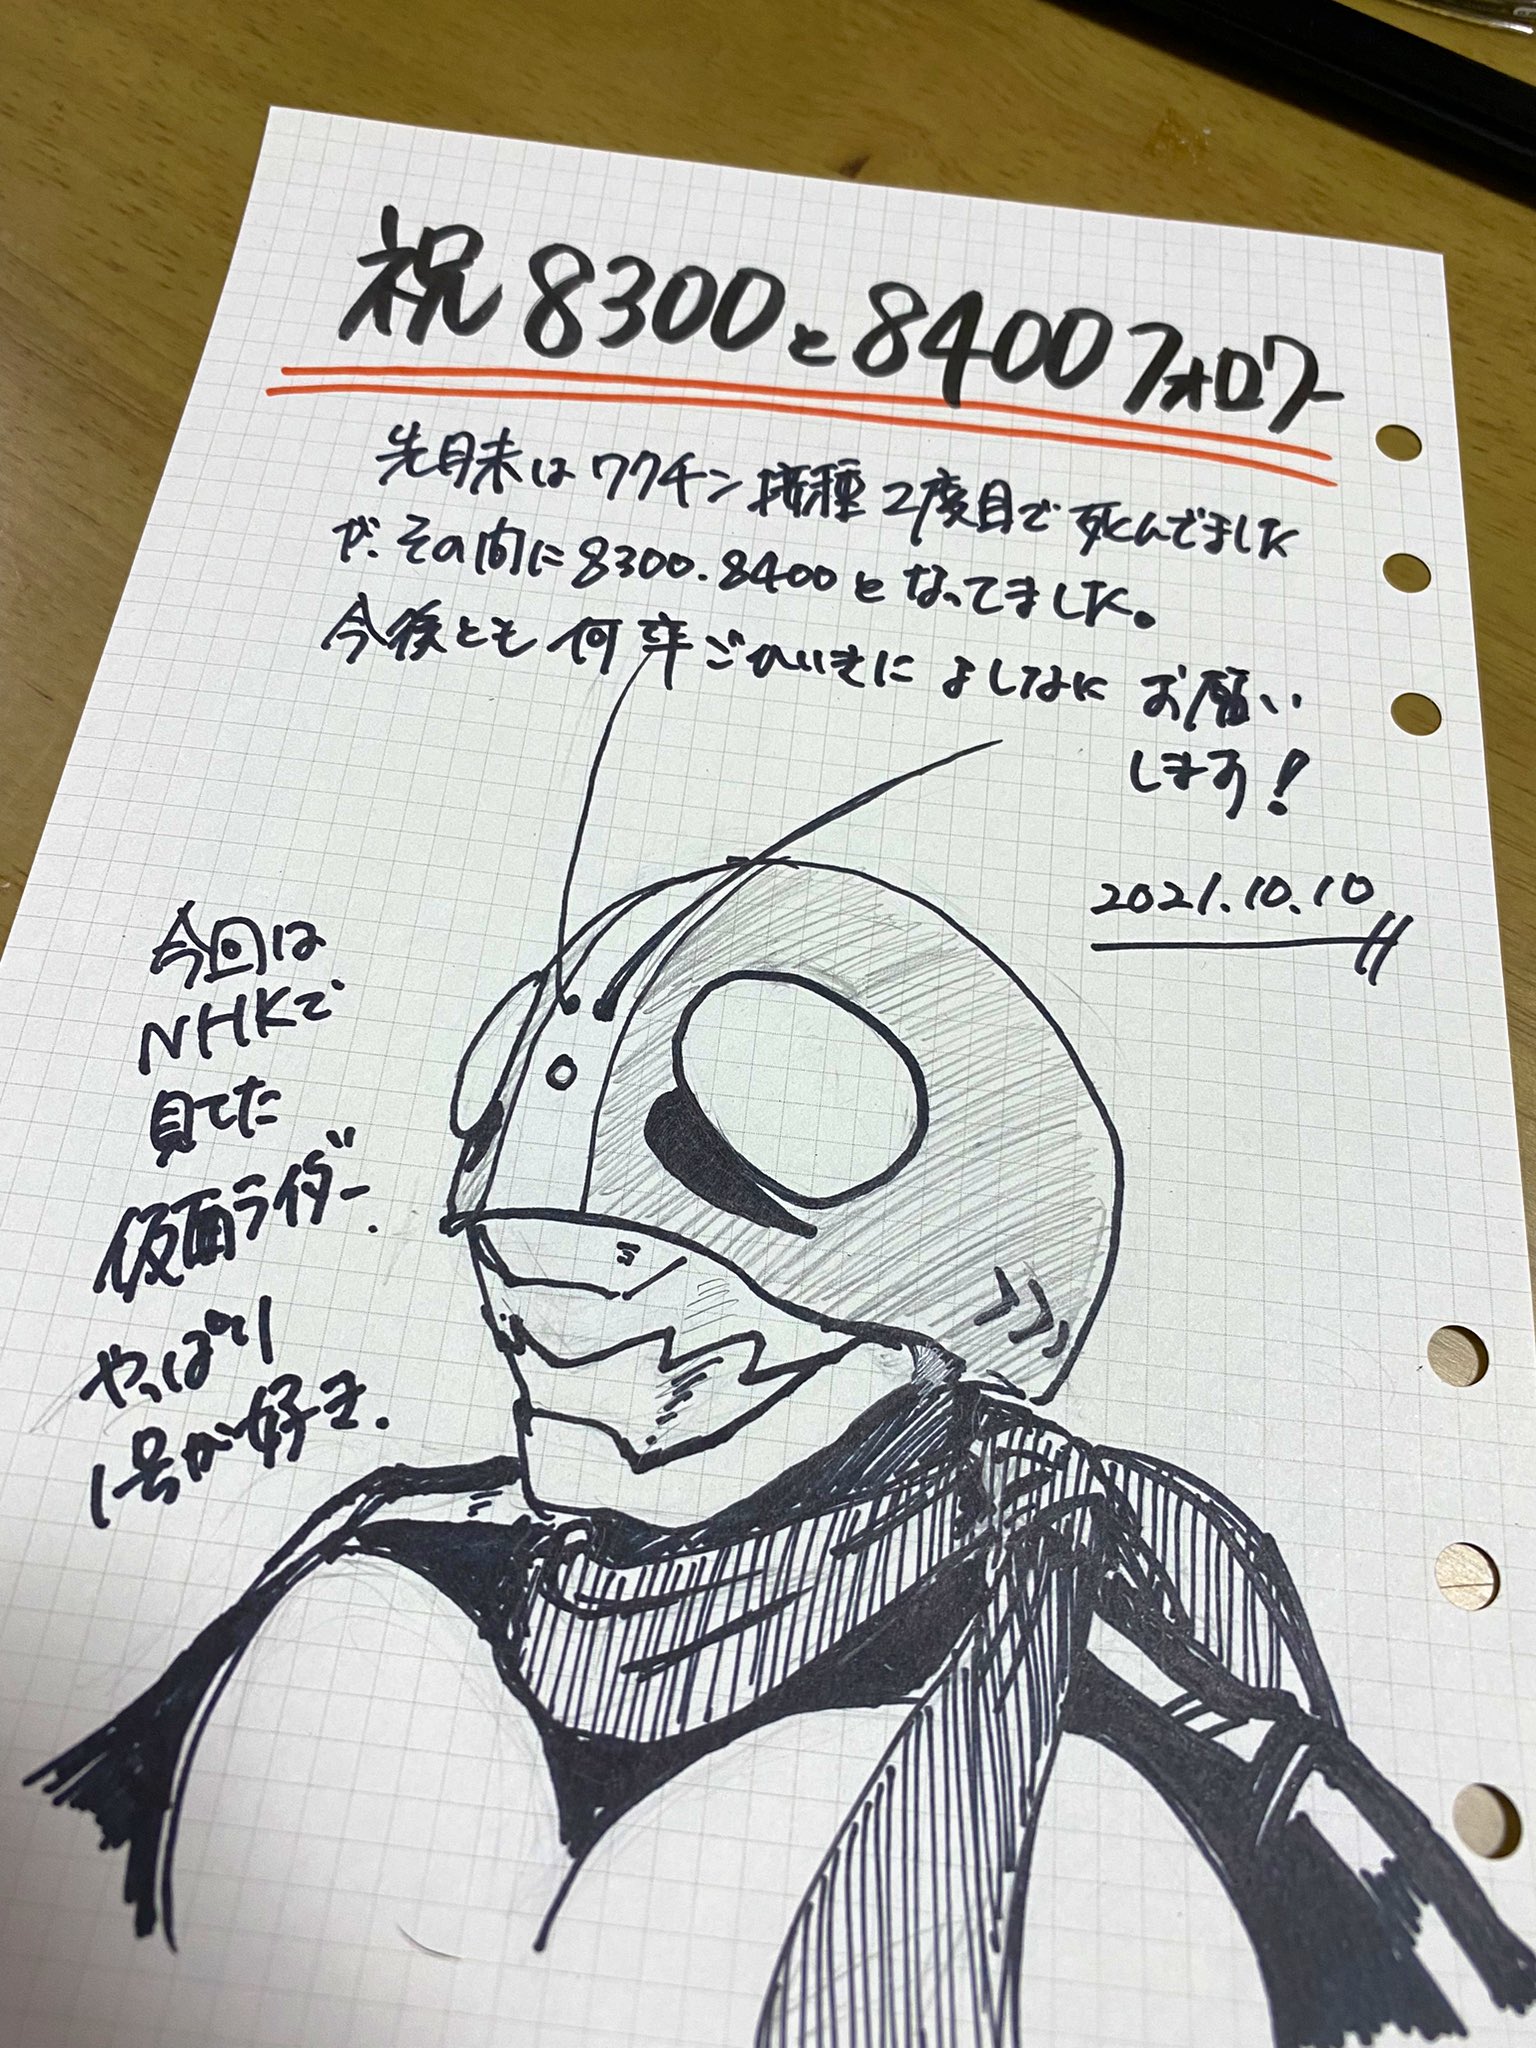 祝 8300と8400フォロワー
先月末はワクチン接種2度目で死んでました
が、その間に8300.8400となってました。
今後とも何卒ごひいきによしなにお願い
します!
2021.10.10
今回は
NHKで
見てた
仮面ライダー.
やっぱり
1号が好き.